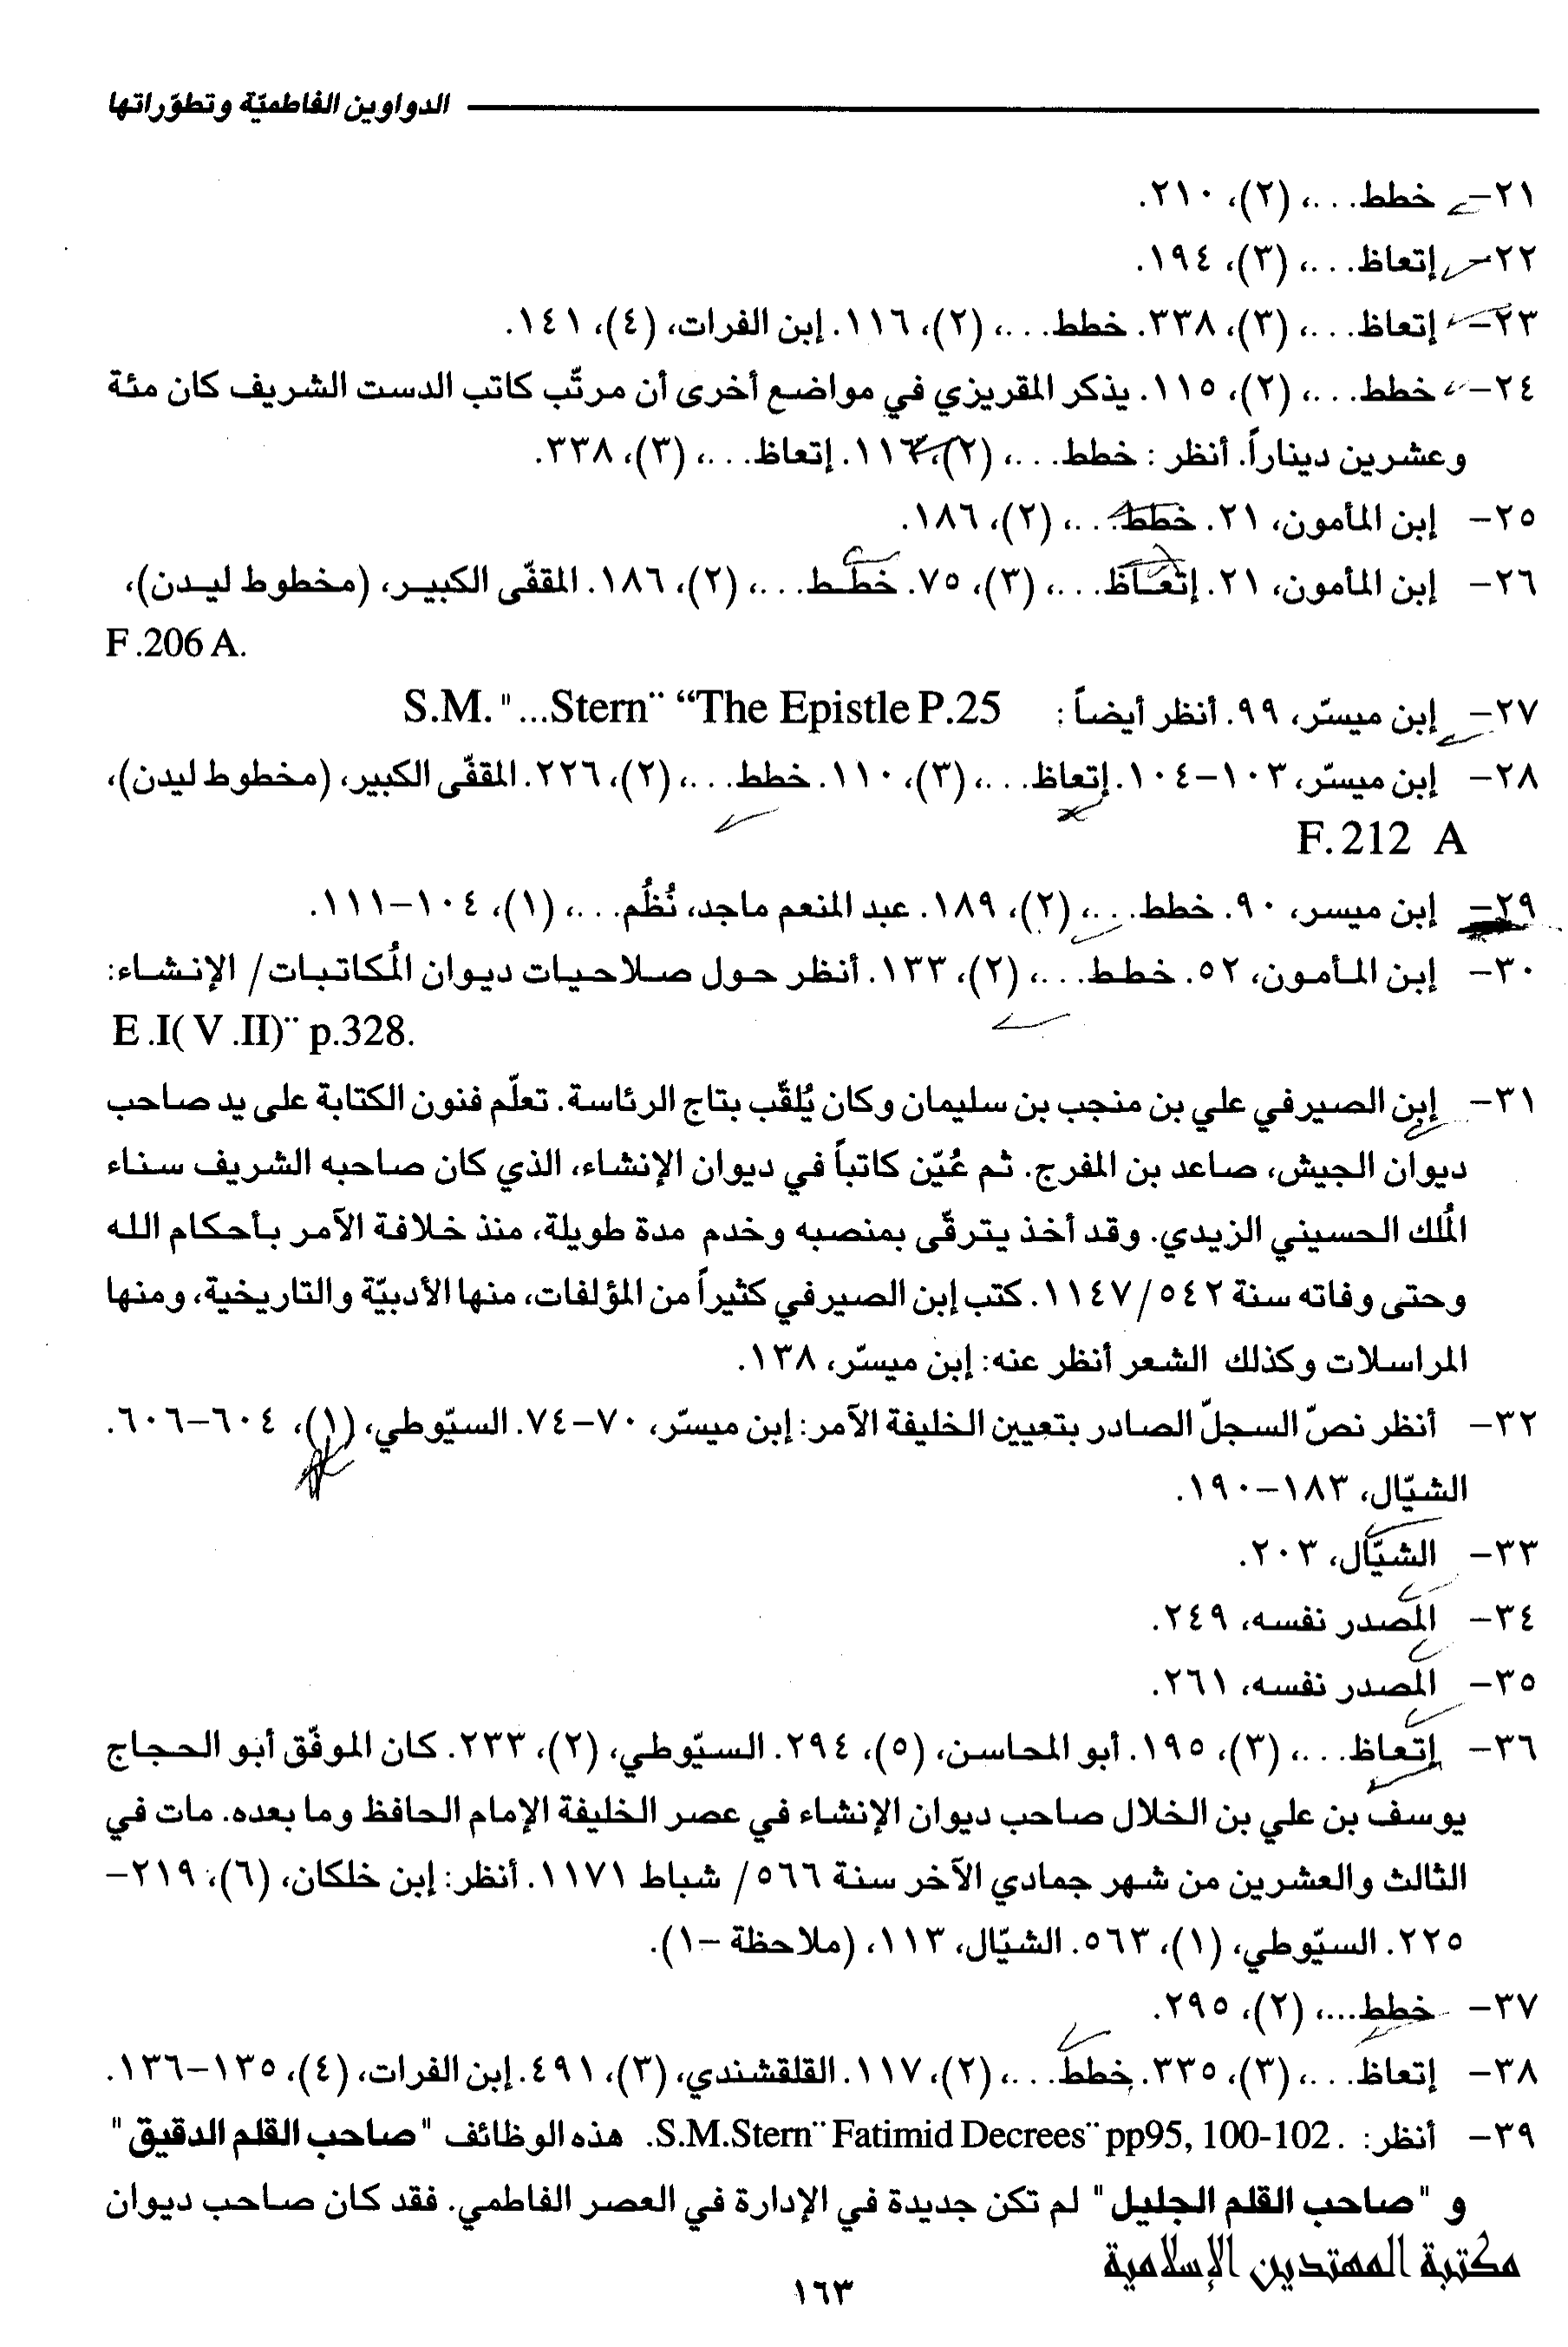 الدواوين الفاطميّة وتطوّراتها
٢١- خطط...، (٢)، ٢١٠.
٢٢- إتعاظ...، (٣)، ١٩٤.
٢٣- إتعاظ...، (٣)، ٣٣٨. خطط...، (٢)، ١١٦. إبن الفرات، (٤)، ١٤١.
٢٤- خطط...، (٢)، ١١٥. يذكر المقريزي في مواضع أخرى أن مرتّب كاتب الدست الشريف كان مئة
وعشرين ديناراً. أنظر : خطط...، (٢)، ١١٦. إتعاظ...، (٣)، ٣٣٨.
٢٥- إبن المأمون، ٢١. خطط...، (٢)، ١٨٦.
٢٦- إبن المأمون، ٢١. إتعاظ...، (٣)، ٧٥. خطط...، (٢)، ١٨٦. المقفّى الكبير، (مخطوط ليدن)،
F .206 A.
٢٧- إبن ميسّر، ٩٩. أنظر أيضاً : S.M. "...Stern¨ “The Epistle P.25
٢٨- إبن ميسّر، ١٠٣-١٠٤. إتعاظ...، (٣)، ١١٠. خطط...، (٢)، ٢٢٦. المقفّى الكبير، (مخطوط ليدن)،
F.212 A
٢٩- إبن ميسر، ٩٠. خطط...، (٢)، ١٨٩. عبد المنعم ماجد، نُظُم...، (١)، ١٠٤-١١١.
٣٠- إبن المأمون، ٥٢. خطط...، (٢)، ١٣٣. أنظر حول صلاحيات ديوان المُكاتبات/ الإنشاء:
E .I( V .II)¨ p.328.
٣١- إبن الصيرفي علي بن منجب بن سليمان وكان يُلقّب بتاج الرئاسة. تعلّم فنون الكتابة على يد صاحب
ديوان الجيش، صاعد بن المفرج. ثم عُيّن كاتباً في ديوان الإنشاء، الذي كان صاحبه الشريف سناء
المُلك الحسيني الزيدي. وقد أخذ يترقّى بمنصبه وخدم مدة طويلة، منذ خلافة الآمر بأحكام الله
وحتى وفاته سنة ٥٤٢/ ١١٤٧. كتب إبن الصيرفي كثيراً من المؤلفات، منها الأدبيّة والتاريخية، ومنها
المراسلات وكذلك الشعر أنظر عنه: إبن ميسّر، ١٣٨.
٣٢- أنظر نصّ السجلّ الصادر بتعيين الخليفة الآمر: إبن ميسّر، ٧٠-٧٤. السيّوطي، (١)، ٦٠٤-٦٠٦.
الشيّال، ١٨٣-١٩٠.
٣٣- الشيّال، ٢٠٣.
٣٤- المصدر نفسه، ٢٤٩.
٣٥- المصدر نفسه، ٢٦١.
٣٦- إتعاظ...، (٣)، ١٩٥. أبو المحاسن، (٥)، ٢٩٤. السيّوطي، (٢)، ٢٣٣. كان الموفّق أبو الحجاج
يوسف بن علي بن الخلال صاحب ديوان الإنشاء في عصر الخليفة الإمام الحافظ وما بعده. مات في
الثالث والعشرين من شهر جمادي الآخر سنة ٥٦٦/ شباط ١١٧١. أنظر: إبن خلكان، (٦)، ٢١٩-
٢٢٥. السيّوطي، (١)، ٥٦٣. الشيّال، ١١٣، (ملاحظة -١).
٣٧- خطط...، (٢)، ٢٩٥.
٣٨- إتعاظ...، (٣)، ٣٣٥. خطط...، (٢)، ١١٧. القلقشندي، (٣)، ٤٩١. إبن الفرات، (٤)، ١٣٥-١٣٦.
٣٩- أنظر: S.M.Stern¨ Fatimid Decrees¨ pp95, 100-102 .. هذه الوظائف "صاحب القلم الدقيق"
و "صاحب القلم الجليل" لم تكن جديدة في الإدارة في العصر الفاطمي. فقد كان صاحب ديوان
مكتبة المهتدين الإسلامية
١٦٣